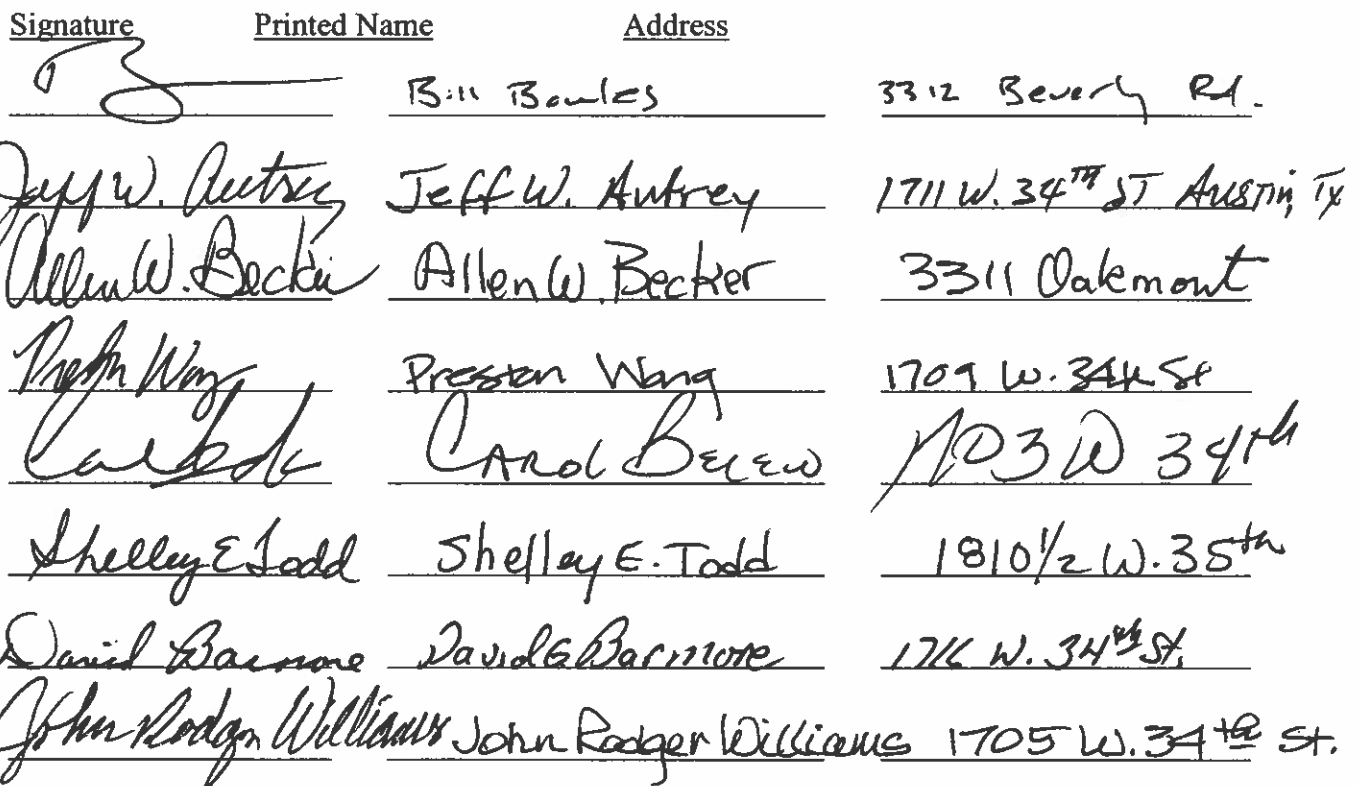 Signature Printed Name Address
Bill Bowles 3312 Beverly Rd.
Jeff W. Autrey Jeff W. Autrey 1711 W. 34TH ST Austin, Tx
Allen W. Becker Allen W. Becker 3311 Oakmont
Preston Wang Preston Wang 1709 W. 34th St
Carol Belew 1703 W 34th
Shelley E Todd Shelley E. Todd 1810 1/2 W. 35th
David Barmore David G Barmore 1716 W. 34th St.
John Rodger Williams John Rodger Williams 1705 W. 34th St.